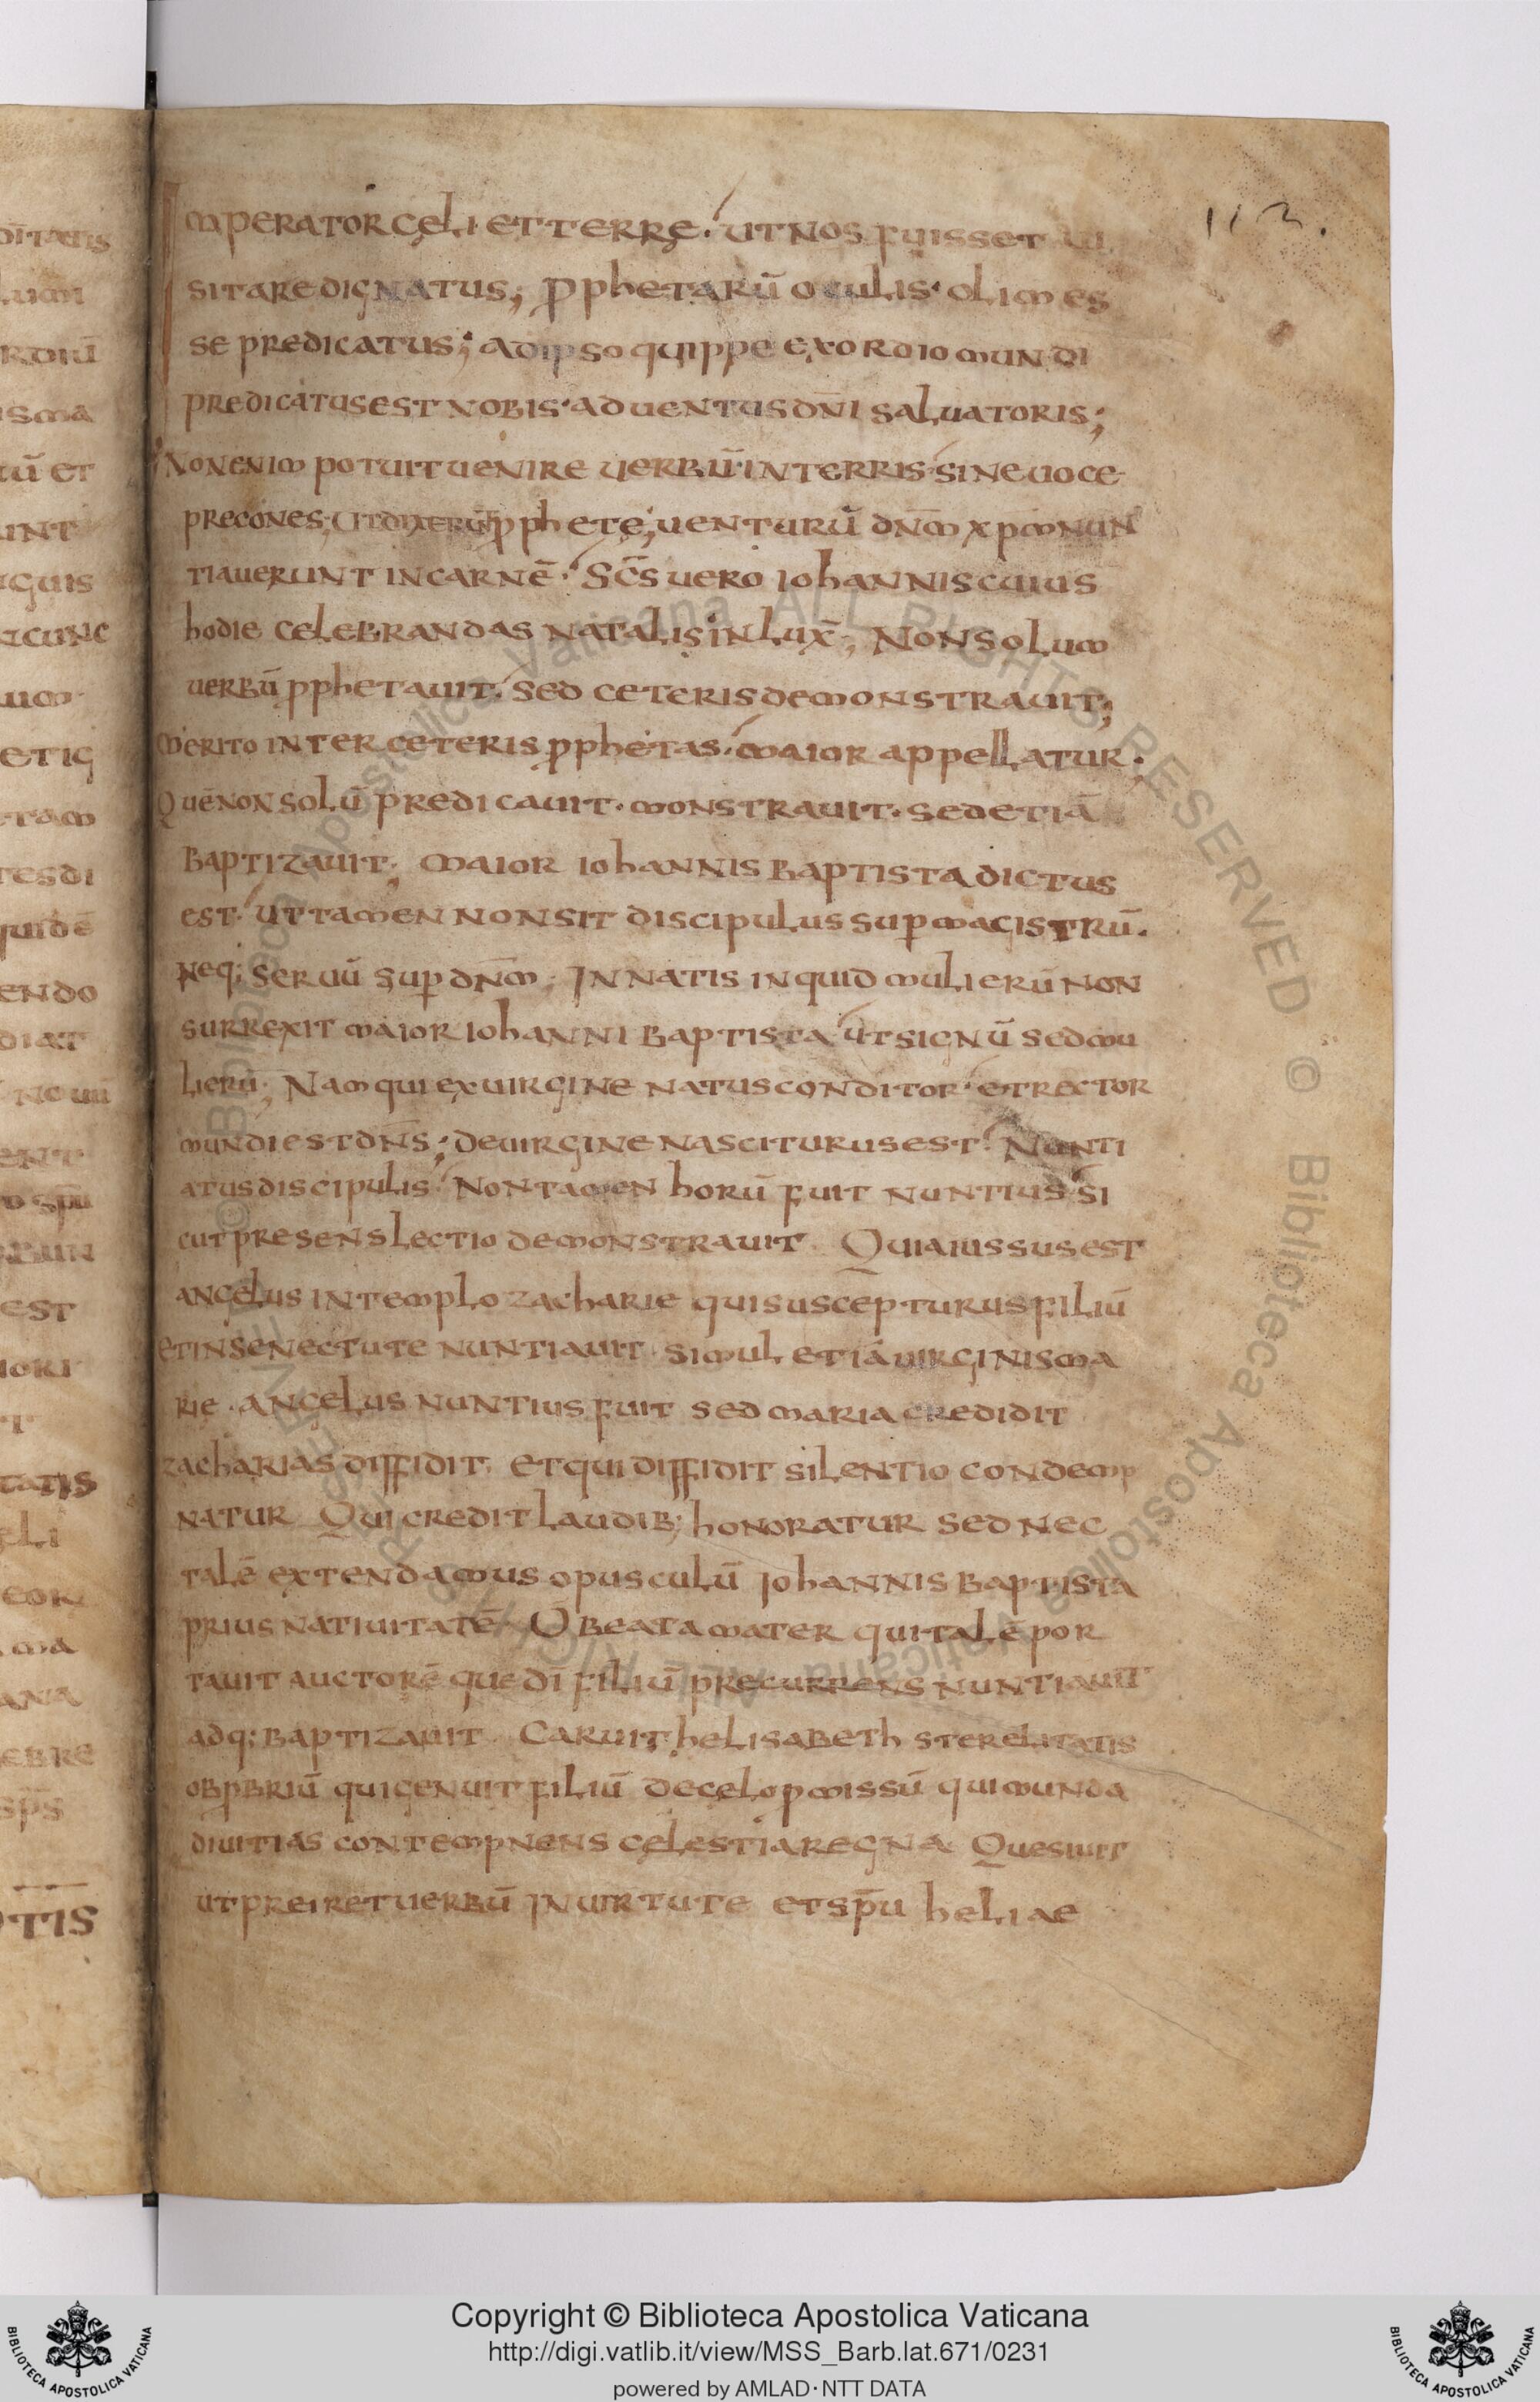 112.
Imperator celi et terre. ut nos fuisset ui
sitare dignatus; Pphetarū oculis. olim es
se predicatus; ad ipso quippe exordio mundi
predicatus est nobis. aduentus dn̄i saluatoris;
Non enim potuit uenire uerbū. in terris. sine uoce
precones; Ut dixerūt pphete, uenturū dn̄m xp̄m nun
tiauerunt in carnē. Sc̄s uero iohannis cuius
hodie celebrandas natalis inlux̄; Non solum
uerbū pphetauit. sed ceteris demonstrauit;
Merito inter ceteris pphetas. maior appellatur;
Quē non solū predicauit. monstrauit. sed etiā
baptizauit; Maior iohannis baptista dictus
est. ut tamen non sit discipulus sup magistrū.
neq; seruū sup dn̄m; In natis inquid mulierū non
surrexit maior iohanni baptista ut signū sed mu
lierū; Nam qui ex uirgine natus conditor. et rector
mundi est dn̄s; de uirgine nasciturus est. Nunti
atus discipulis. Non tamen horū fuit nuntius. si
cut presens lectio demonstrauit. Quia iussus est
angelus in templo zacharie qui suscepturus filiū
et in senectute nuntiauit. simul etiā uirginis ma
rie. angelus nuntius fuit sed maria credidit
zacharias diffidit. et qui diffidit silentio condemp
natur Qui credit laudib; honoratur sed nec
talē extendamus opusculū iohannis baptista
prius natiuitatē. O beata mater qui talē por
tauit auctorē que dī filiū precurrens nuntiauit
adq; baptizauit. Caruit helisabeth sterelitatis
obpbriū qui genuit filiū de celo pmissū qui munda
diuitias contempnens celestia regna Quesiuit
ut preiret uerbū in uirtute et sp̄u heliae
Copyright © Biblioteca Apostolica Vaticana
http://digi.vatlib.it/view/MSS_Barb.lat.671/0231
powered by AMLAD · NTT DATA